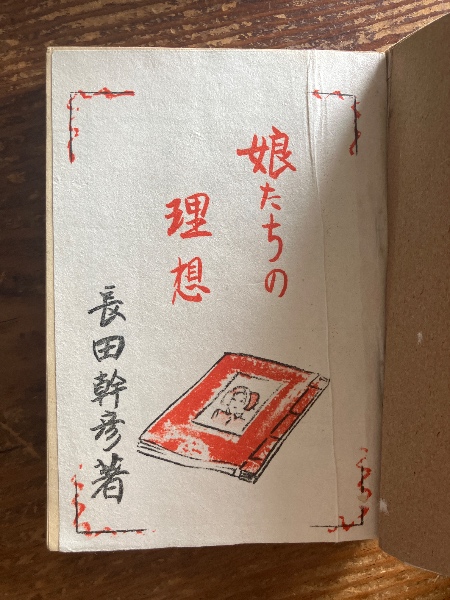 娘たちの
理想
長田幹彦著